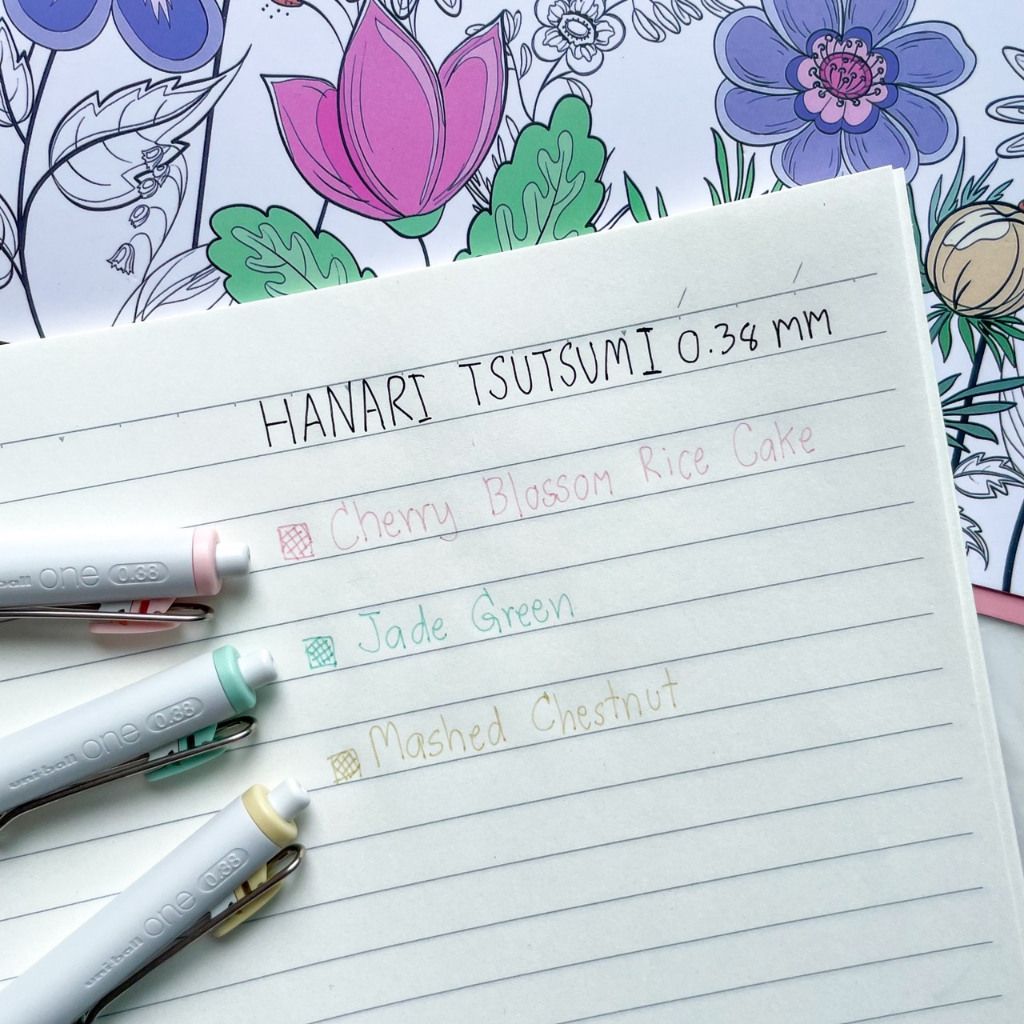 HANARI TSUTSUMI 0.38 mm
Cherry Blossom Rice Cake
Jade Green
Mashed Chestnut
ball one 0.38
uni-ball one 0.38
uni-ball one 0.38